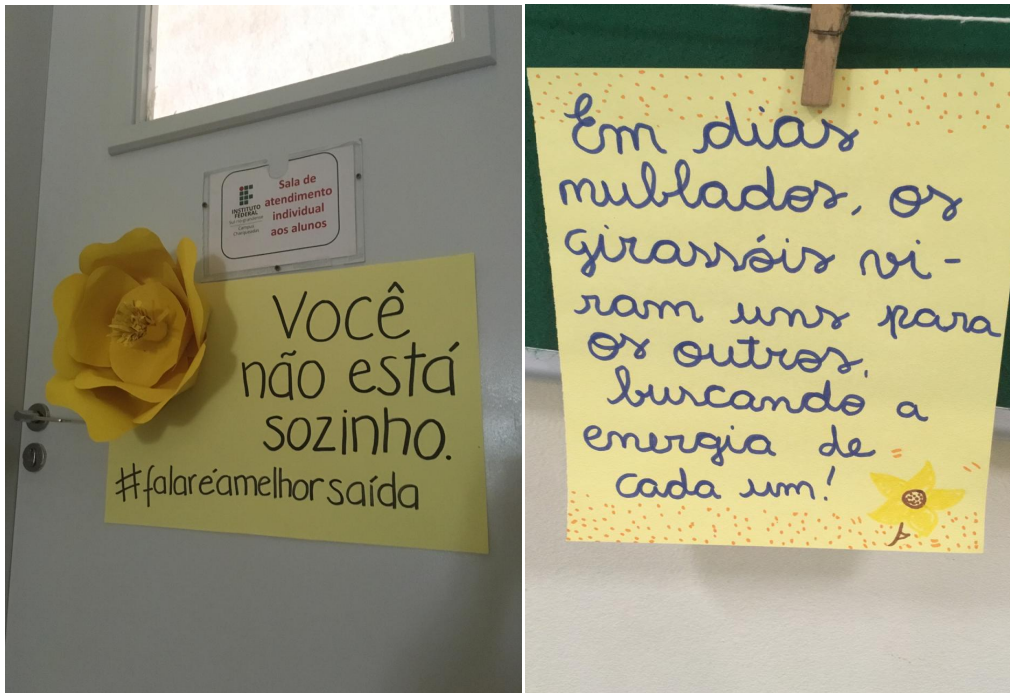 INSTITUTO
FEDERAL
Sul-rio-grandense
Campus
Charqueadas
Sala de
atendimento
individual
aos alunos
Você
não está
sozinho.
#falaréamelhorsaída
Em dias
nublados, os
girassóis vi-
ram uns para
os outros,
buscando a
energia de
cada um!